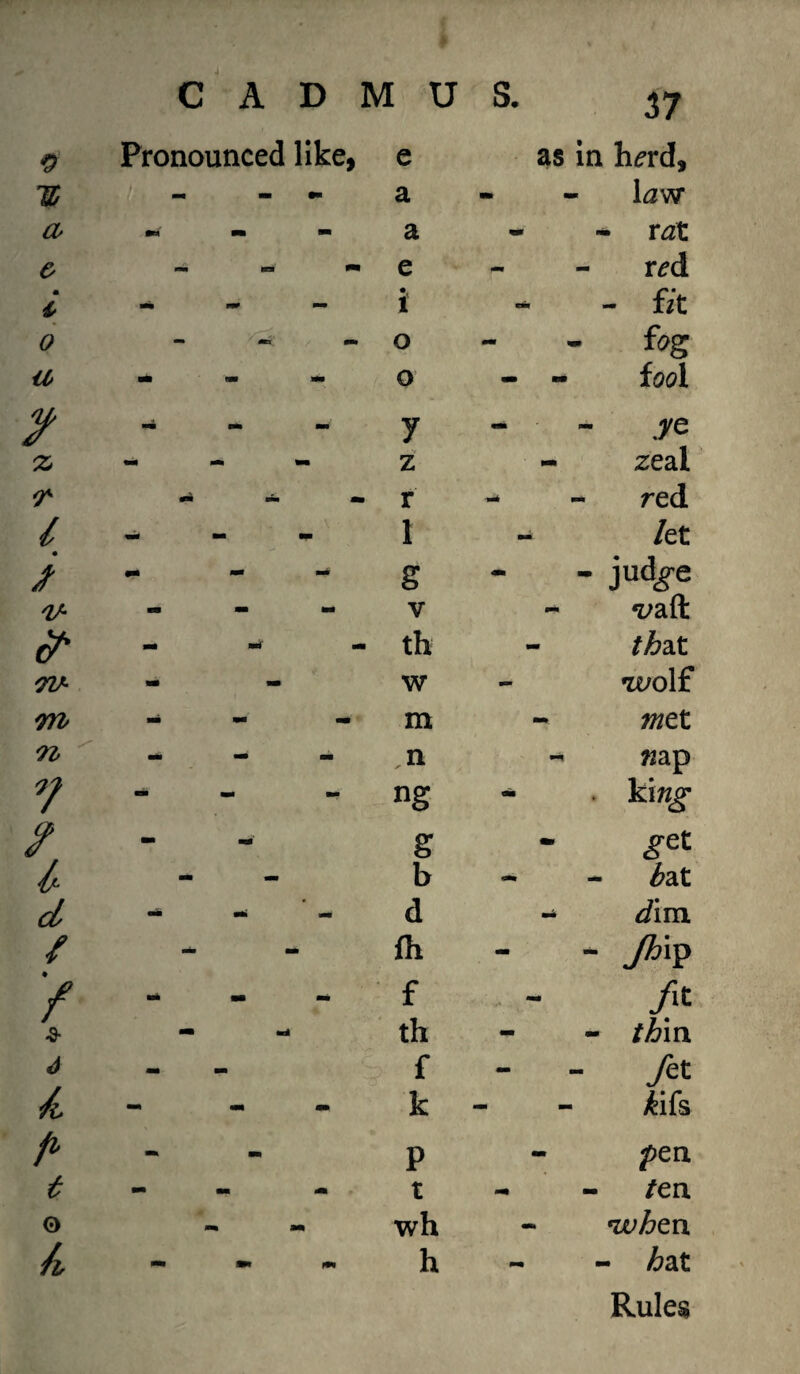 CADMUS. 37
Pronounced like, e as in herd,
- - - a - - law
a - - - a - - rat
e - - - e - - red
i - - - i - - fit
o - - - o - - fog
u - - - o - - fool
y - - - y - - ye
z - - - z - zeal
r - - - r - - red
l - - - l - let
j - - - g - - judge
v - - - v - vaſt
- - - th - that
w - - w - wolf
m - - - m - met
n - - - n - nap
ŋ - - - ng - . king
g - - g - get
b - - b - - bat
d - - - d - dim
ſ - - ſh - - ſhip
f - - - f - fit
ϑ - - th - - thin
s - - ſ - - ſet
k - - - k - - kiſs
p - - p - pen
t - - - t - - ten
ʘ - - wh - when
h - - - h - - hat
Rules